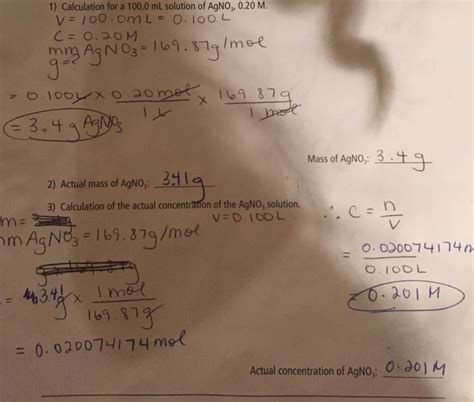 1) Calculation for a 100.0 mL solution of AgNO₃, 0.20 M.
V = 100.0mL = 0.100L
C = 0.20M
mm AgNO₃ = 169.87g/mol
g=?
= 0.100L × 0.20 mol / 1 L × 169.87g / 1 mol
= 3.4g AgNO₃
Mass of AgNO₃: 3.4g
2) Actual mass of AgNO₃: 3.41g
3) Calculation of the actual concentration of the AgNO₃ solution.
m =
V=0.100L
mm AgNO₃ = 169.87g/mol
= 3.41g × 1 mol / 169.87g
= 0.020074174 mol
∴ C = n / V
= 0.020074174 m / 0.100L
= 0.201 M
Actual concentration of AgNO₃: 0.201 M